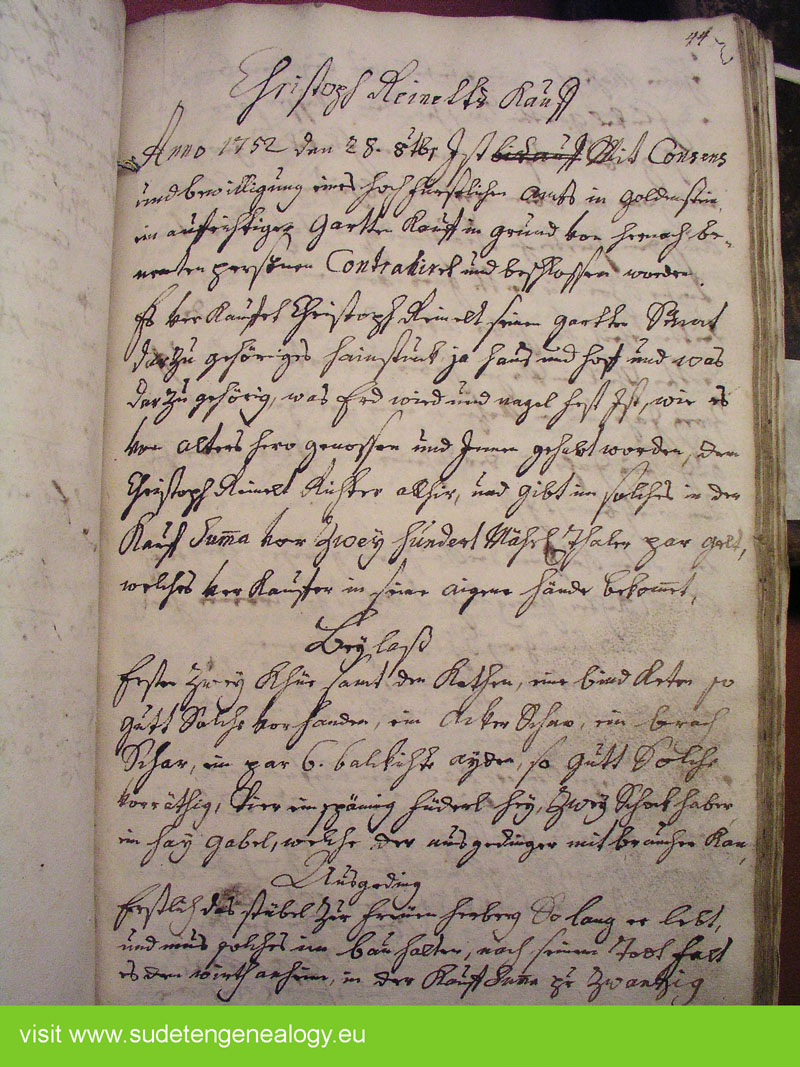 44
Christoph Reinelts Kauff
Anno 1752 den 28. 8tbr Ist bickauff Mit Consens
und bewilligung eines hoch fürstlichen ambts in goldenstein
ein auffrichtiger Gartten Kauff in grund von hernach be-
nenten persohnen Contrahiret und beschlossen worden
Es verKauffet Christoph Reinelt seinen gartten
darzu gehöriges hainstuck ja hauß und hoff und was
darzu gehörig, was Erd wied und nagel fest Ist, wie es
von alters hero genossen und Innen gehabt worden, dem
Christoph Reinelt Richter alhir, und gibt im solches in der
Kauff Suma vor Zwey hundert Mähr Thaler par gelt,
welches verKauffer in seine aigene hände bekomet,
Beylaß
Erster Zwey Khüe samt den Kethen, eine bind Keten so
gutt Solche vorhanden, ein Acker Schar, ein brach
Schar, ein par 6. balckichte ayden, so gutt Solche
vorräthig, Vier einspänig hey, Zwey Schock haber,
ein hay gabel, welche der ausgedinger mit brauchen Kan,
Ausgeding
Erstlich das stübel zur freuen herberg So lang er lebt,
und mus solches im bau halten, nach seinem Todt falt
es dem wirth anheim, in der Kauff Suma pr Zwantzig
visit www.sudetengenealogy.eu